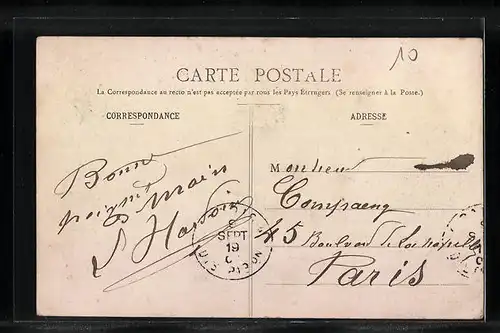 10
CARTE POSTALE
La Correspondance au recto n'est pas acceptée par tous les Pays Étrangers (Se renseigner à la Poste.)
CORRESPONDANCE
ADRESSE
Bonne
poignée
de main
Monsieur
45 Boulevard de
Paris
SEPT
19